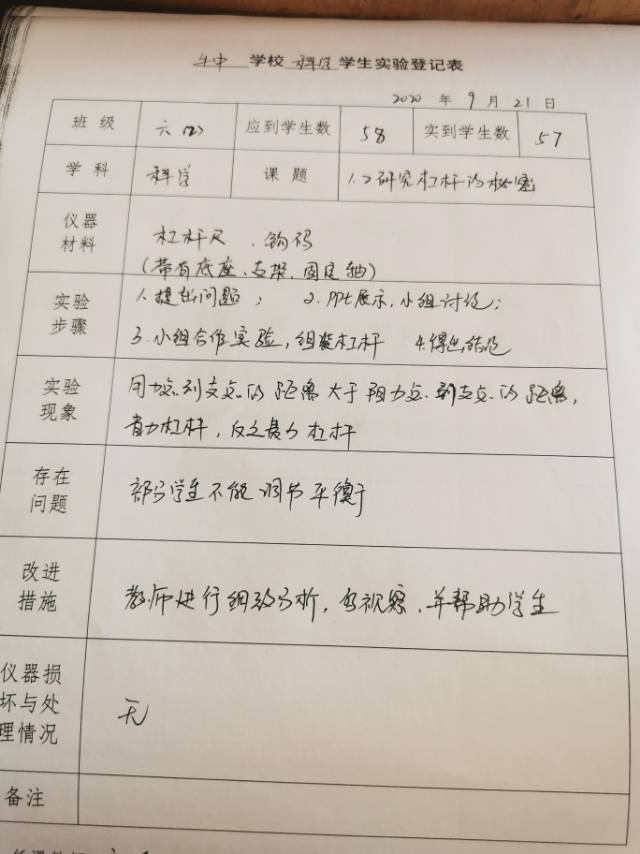 牛中 学校 科学 学生实验登记表
2020 年 9 月 21 日
班级 六(2) 应到学生数 58 实到学生数 57
学科 科学 课题 1.2研究杠杆的秘密
仪器
材料
杠杆尺、钩码
(带有底座、支架、固定轴)
实验
步骤
1.提出问题; 2.PPt展示,小组讨论;
3.小组合作实验,组装杠杆 4.得出结论
实验
现象
用力点到支点的距离大于阻力点到支点的距离,
省力杠杆,反之费力杠杆
存在
问题
部分学生不能调节平衡
改进
措施
教师进行细致分析,多视察,并帮助学生
仪器损
坏与处
理情况
无
备注